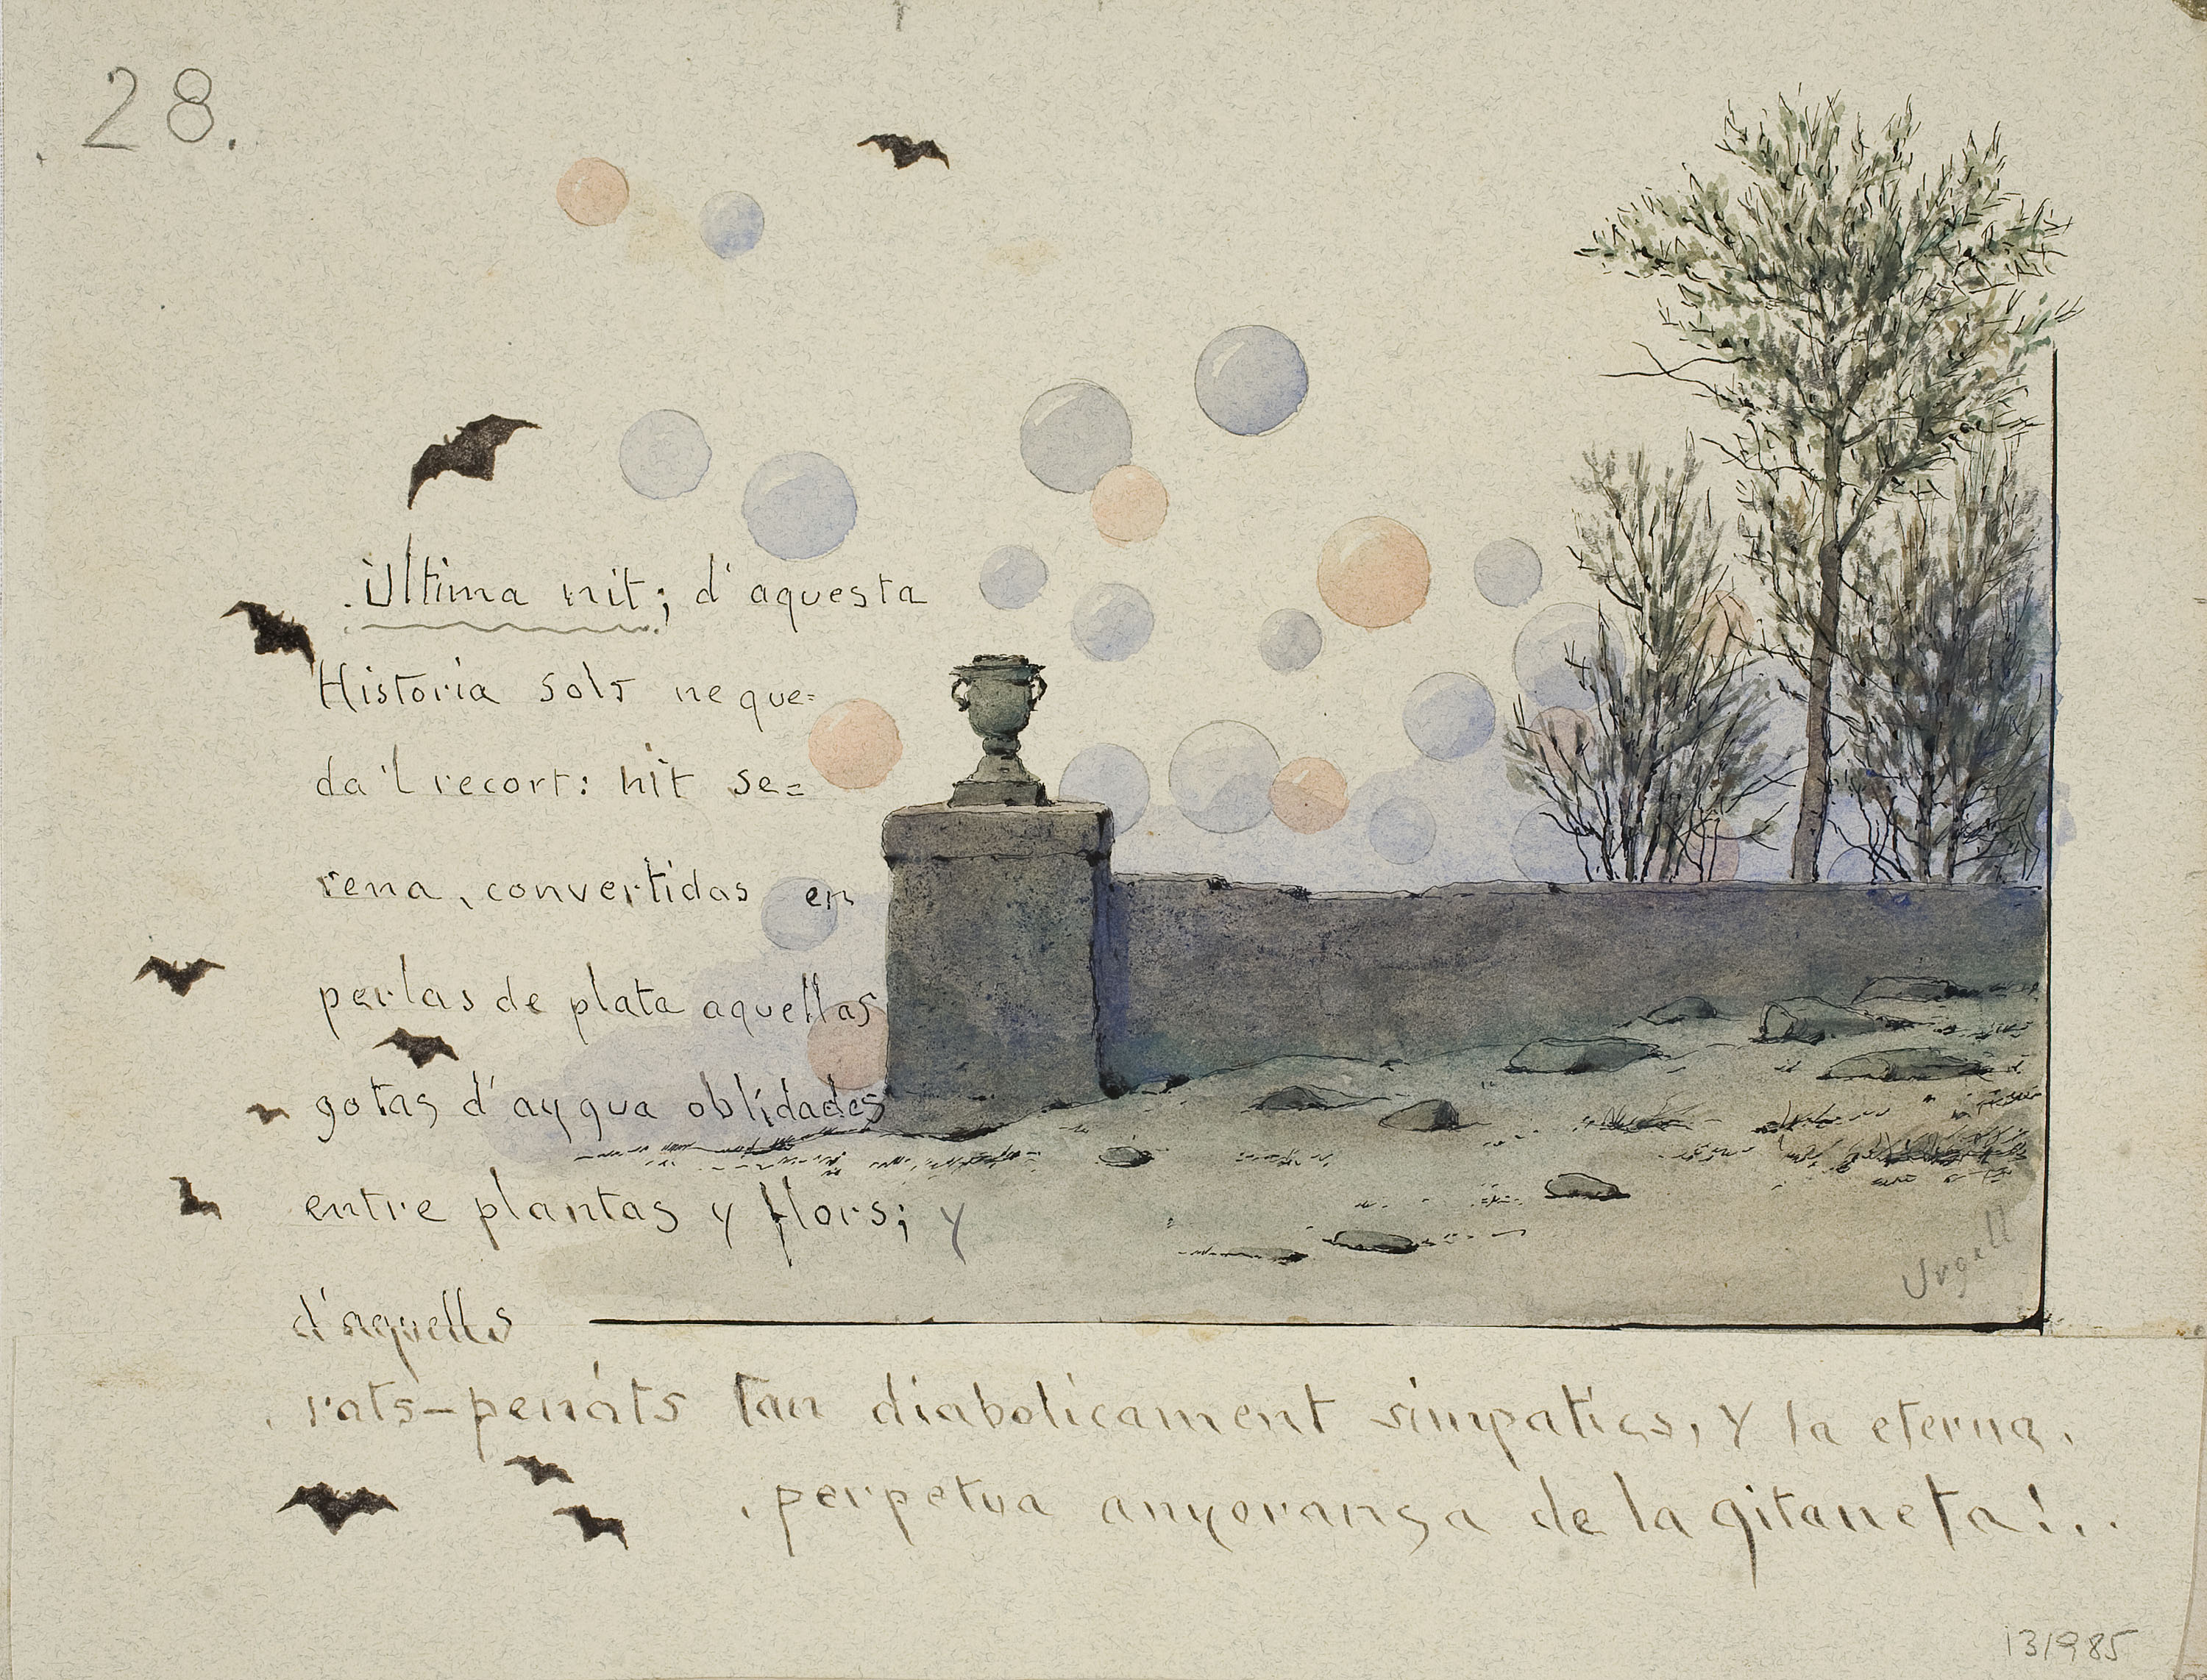 28.
Ultima nit; d'aquesta
Historia sols ne que=
da'l recort: nit se=
rena, convertidas en
perlas de plata aquellas
gotas d'aygua oblidades
entre plantas y flors; y
d'aquells
Urgell
rats-penats tan diabolicament simpatics, y la eterna,
perpetua anyoransa de la gitaneta!..
131985